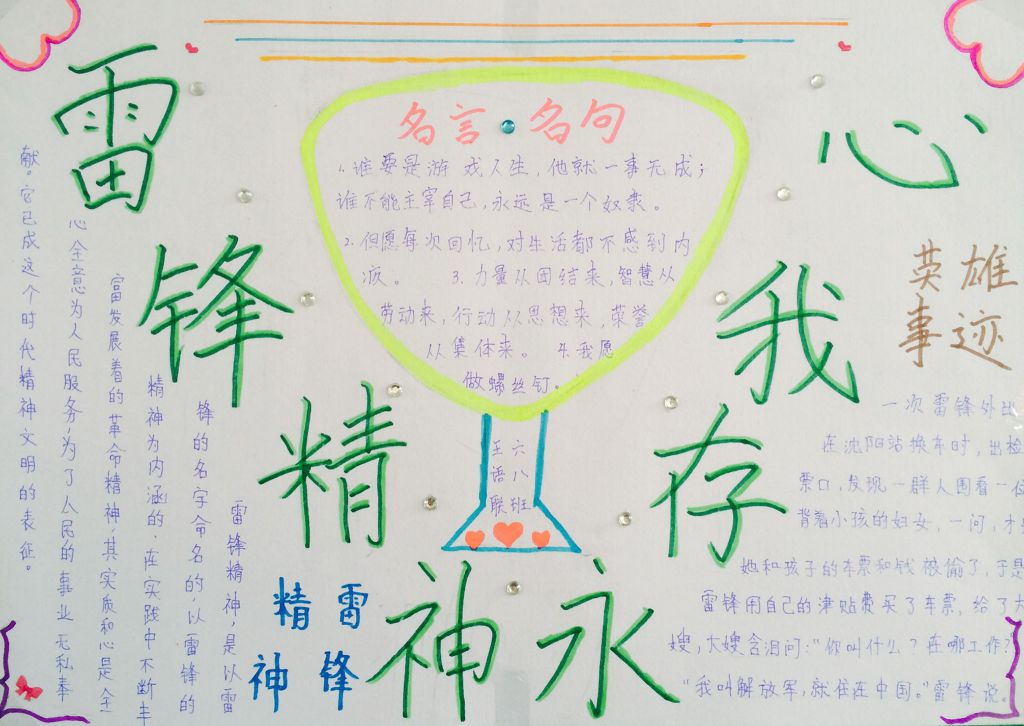 雷锋精神永存我心
名言·名句
1.谁要是游戏人生,他就一事无成;
谁不能主宰自己,永远是一个奴隶。
2.但愿每次回忆,对生活都不感到内
疚。 3.力量从团结来,智慧从
劳动来,行动从思想来,荣誉
从集体来。 4.我愿
做螺丝钉。
六八班
王语联
雷锋
精神
雷锋精神,是以雷
锋的名字命名的、以雷锋的
精神为内涵的、在实践中不断丰
富发展着的革命精神,其实质和心是全
心全意为人民服务,为了人民的事业无私奉
献。它已成这个时代精神文明的表征。
英雄
事迹
一次雷锋外出
在沈阳站换车时,出检
票口,发现一群人围看一位
背着小孩的妇女,一问,才
她和孩子的车票和钱被偷了,于是
雷锋用自己的津贴费买了车票,给了大
嫂,大嫂含泪问:“你叫什么?在哪工作?
“我叫解放军,就住在中国。”雷锋说。